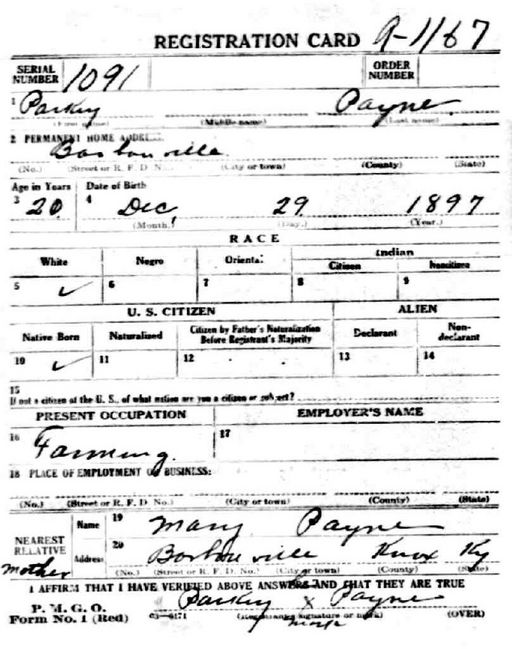 REGISTRATION CARD A-1167
SERIAL NUMBER 1091 ORDER NUMBER
1 Parky Payne
(First name) (Middle name) (Last name)
2 PERMANENT HOME ADDRESS:
Barbourville
(No.) (Street or R. F. D. No.) (City or town) (County) (State)
Age in Years Date of Birth
3 20 4 Dec, 29 1897
(Month.) (Day.) (Year.)
RACE
White Negro Oriental Indian
Citizen Noncitizen
5 ✓ 6 7 8 9
U. S. CITIZEN ALIEN
Native Born Naturalized Citizen by Father's Naturalization Before Registrant's Majority Declarant Non-declarant
10 ✓ 11 12 13 14
15
If not a citizen of the U. S., of what nation are you a citizen or subject?
PRESENT OCCUPATION EMPLOYER'S NAME
16 Farming. 17
18 PLACE OF EMPLOYMENT OR BUSINESS:
(No.) (Street or R. F. D. No.) (City or town) (County) (State)
NEAREST RELATIVE Name 19 Mary Payne
Mother Address 20 Barbourville Knox Ky
(No.) (Street or R. F. D. No.) (City or town) (County) (State)
I AFFIRM THAT I HAVE VERIFIED ABOVE ANSWERS AND THAT THEY ARE TRUE
his
P. M. G. O. Parky x Payne
Form No. 1 (Red) 03-6171 (Registrant's signature or mark) (OVER)
mark